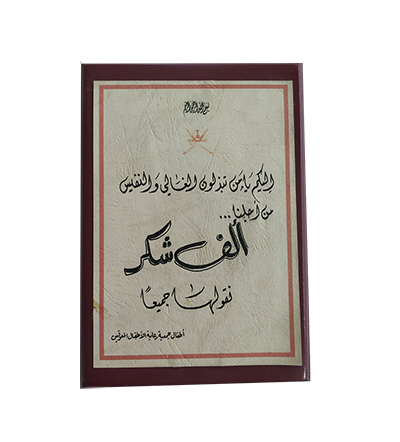 بسم الله الرحمن الرحيم
إليكم يا من تبذلون الغالي والنفيس
من أجلنا...
ألف شكر
نقولها جميعًا
أطفال جمعية رعاية الأطفال المعوقين